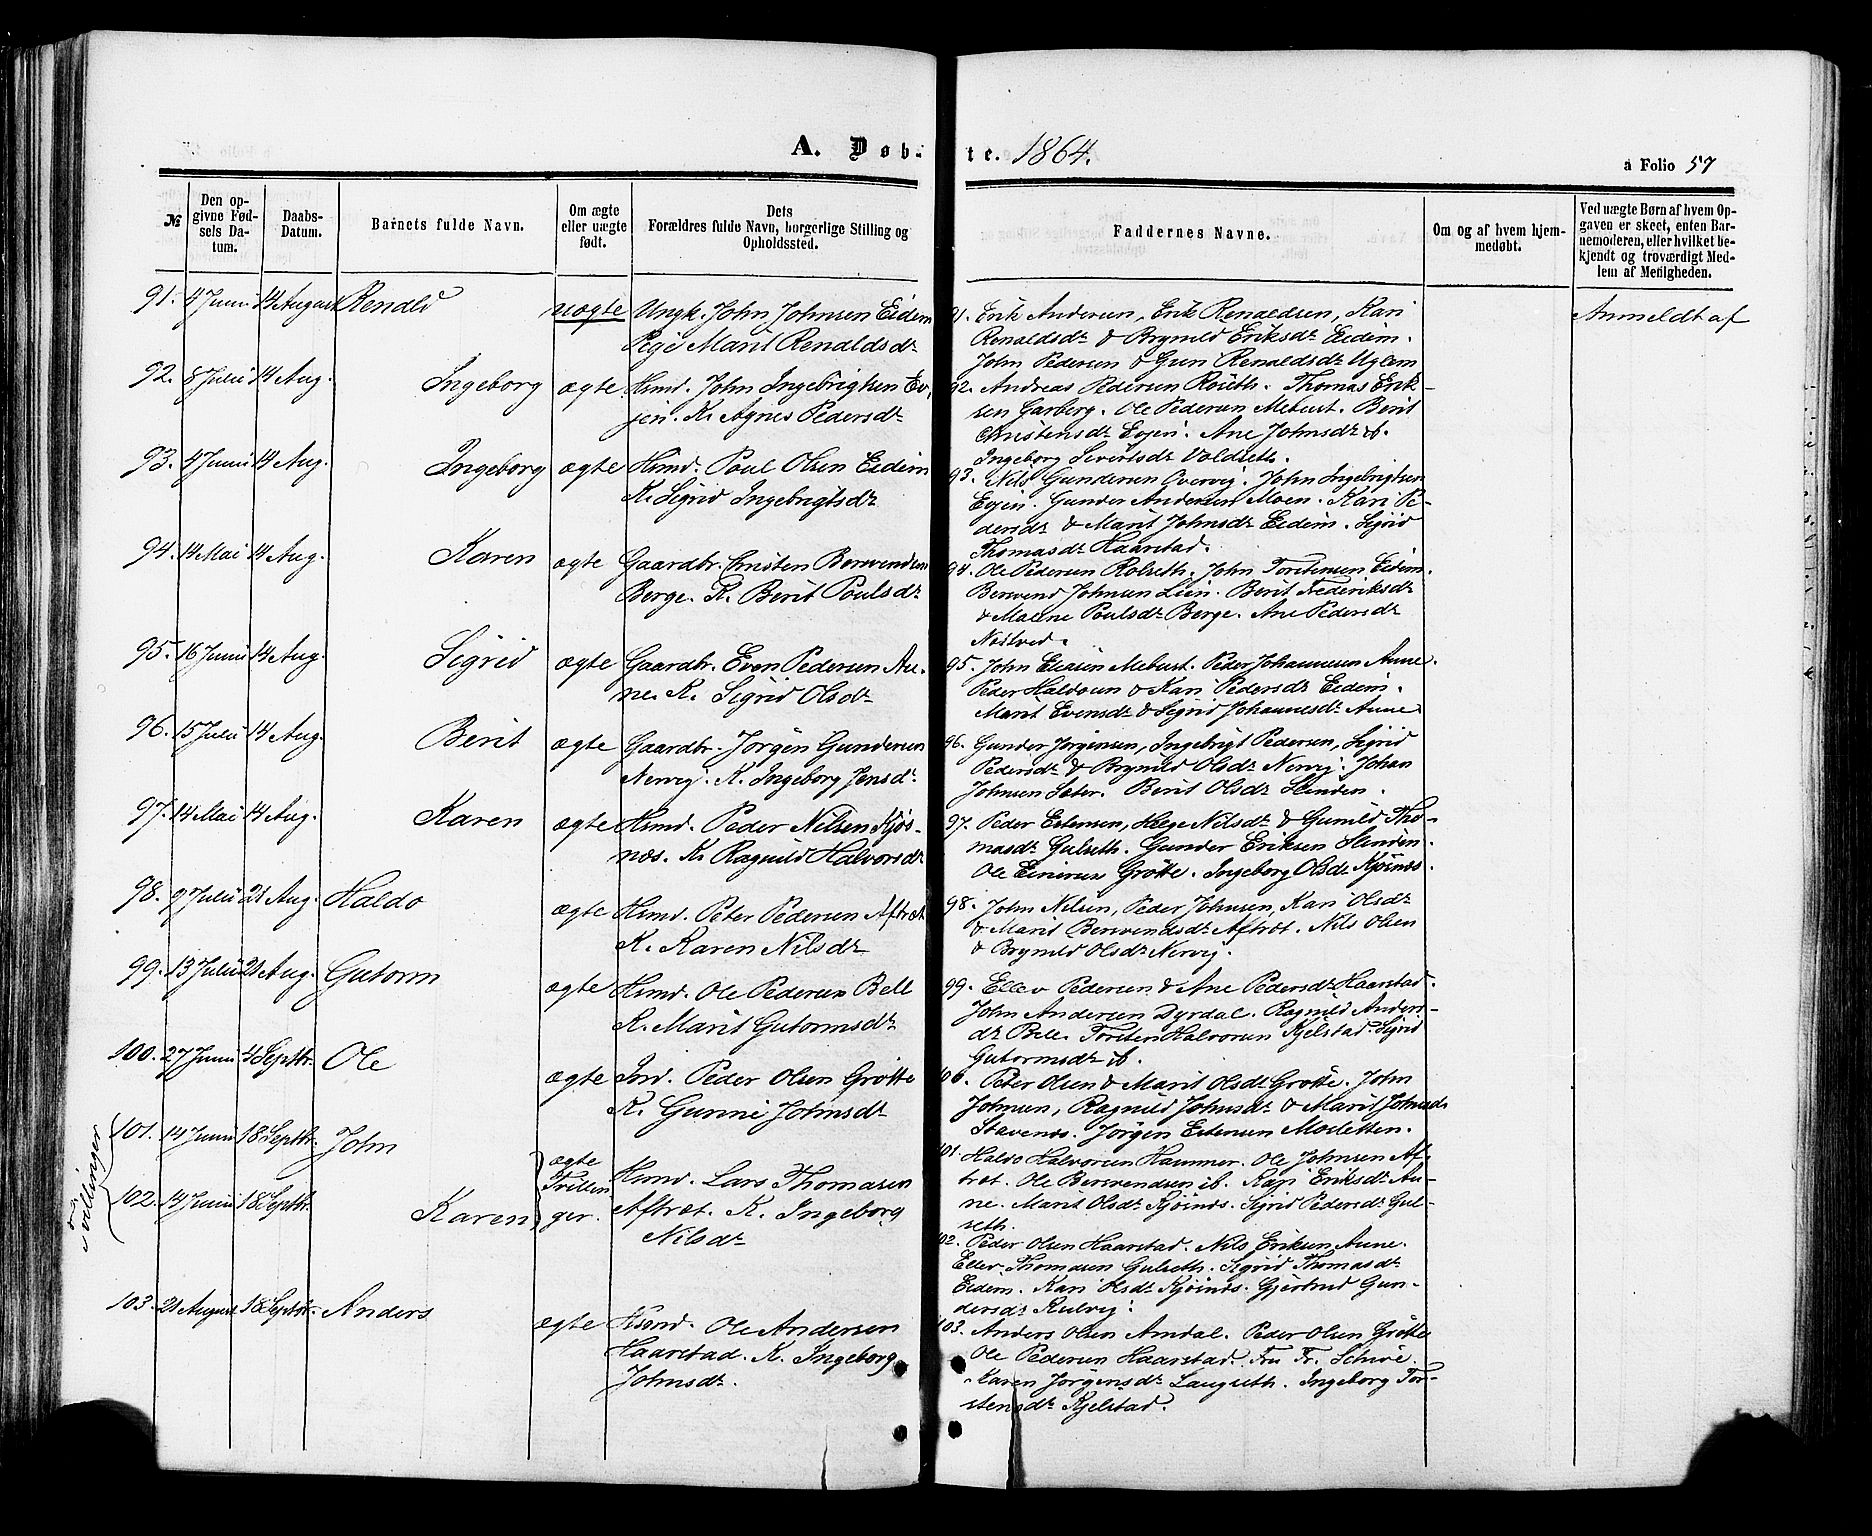 A. Døb-te. 1864.
a Folio 57
№
Den opgivne Fødsels Datum.
Daabs-Datum.
Barnets fulde Navn.
Om ægte eller uægte født.
Dets Forældres fulde Navn, borgerlige Stilling og Opholdssted.
Faddernes Navne.
Om og af hvem hjemmedøbt.
Ved uægte Børn af hvem Opgaven er skeet, enten Barnemoderen, eller hvilket bekjendt og troværdigt Medlem af Menigheden.
91. 4 Juni 14 August Renald uægte Ungk. John Johnsen Eidem
Pige Marit Renaldsdr
91. Erik Andersen, Erik Renaldsen, Kari
Renaldsdr & Brynild Eriksdr Eidem.
John Pedersen & Gun Renaldsdr Uglem
Anmeldt af
92. 8 Julii 14 Aug. Ingeborg ægte Hsmd. John Ingebrigtsen Ev-
jen. K. Agnes Pedersdr
92. Andreas Pedersen Roseth. Thomas Erik-
sen Garberg. Ole Pedersen Mebust. Berit
Christensdr Evjen. Ane Johnsdr ib.
Ingeborg Sivertsdr Voldseth.
93. 4 Juni 14 Aug. Ingeborg ægte Hsmd. Poul Olsen Eidem
K. Sigrid Ingebrigtsdr
93. Nils Gundersen Overvig. John Ingebrigtsen
Evjen. Gunder Andersen Moen. Kari Pe-
dersdr & Marit Johnsdr Eidem. Sigrid
Thomasdr Haarstad.
94. 14 Mai 14 Aug. Karen ægte Gaardbr. Christen Bersvendsen
Berge. K. Berit Poulsdr
94. Ole Pedersen Rolseth. John Torstensen Eidem.
Bersvend Johnsen Lien. Berit Frederiksdr
& Malene Poulsdr Berge. Ane Pedersdr
Nestved.
95. 16 Juni 14 Aug. Sigrid ægte Gaardbr. Even Pedersen Au-
ne. K. Sigrid Olsdr
95. John Eliasen Mebust. Peder Johannesen Aune.
Peder Haldosen & Kari Pedersdr Eidem.
Marit Evensdr & Sigrid Johannesdr Aune
96. 15 Julii 14 Aug. Berit ægte Gaardbr. Jørgen Gundersen
Nervig. K. Ingeborg Jensdr
96. Gunder Jørgensen, Ingebrigt Pedersen, Sigrid
Pedersdr & Brynild Olsdr Nervig. Johan
Johnsen Sæter. Berit Olsdr Slinden.
97. 14 Mai 14 Aug. Karen ægte Hsmd. Peder Nilsen Kjøs-
næs. K. Ragnild Halvorsdr
97. Peder Estensen, Hege Nilsdr & Gunild Tho-
masdr Gulseth. Gunder Eriksen Slinden.
Ole Einersen Grøtte. Ingeborg Olsdr Kjøsnes.
98. 9 Julii 21 Aug. Haldo ægte Hsmd. Peter Pedersen Aftræt
K. Karen Nilsdr
98. John Nilsen, Peder Johnsen, Kari Olsdr
& Marit Bersvendsdr Aftræt. Nils Olsen
& Brynild Olsdr Nervig.
99. 13 Julii 21 Aug. Gutorm ægte Hsmd. Ole Pedersen Bell
K. Marit Gutormsdr
99. Ellev Pedersen & Ane Pedersdr Haarstad.
John Andersen Dyrdal. Ragnild Anders-
dr Bell. Torsten Halvorsen Kjelstad. Sigrid
Gutormsdr ib.
100. 27 Juni 4 Septbr. Ole ægte Ind. Peder Olsen Grøtte
K. Gurine Johnsdr
100. Peter Olsen & Marit Olsdr Grøtte. John
Johnsen, Ragnild Johnsdr & Marit Johnsdr
Stavenes. Jørgen Estensen Mosletten.
Tvillinger
101. 14 Juni 18 Septbr. John
102. 14 Juni 18 Septbr. Karen
ægte
Tvillin
ger.
Hsmd. Lars Thomasen
Aftræt. K. Ingeborg
Nilsdr
101. Haldo Halvorsen Hammer. Ole Johnsen Af-
træt. Ole Bersvendsen ib. Kari Eriksdr Au-
ne. Marit Olsdr Kjøsnes. Sigrid Pedersdr Gul-
seth.
102. Peder Olsen Haarstad. Nils Eriksen Aune.
Ellev Thomasen Gulseth. Sigrid Thomasdr
Eidem. Kari Olsdr Kjøsnes. Gjertrud Gun-
dersdr Kulvig.
103. 21 August 18 Septbr. Anders ægte Hsmd. Ole Andersen
Haarstad. K. Ingeborg
Johnsdr.
103. Anders Olsen Amdal. Peder Olsen Grøtte
Ole Pedersen Haarstad. Fru Fr. Schive.
Karen Jørgensdr Langseth. Ingeborg Tor-
stensdr Kjelstad.